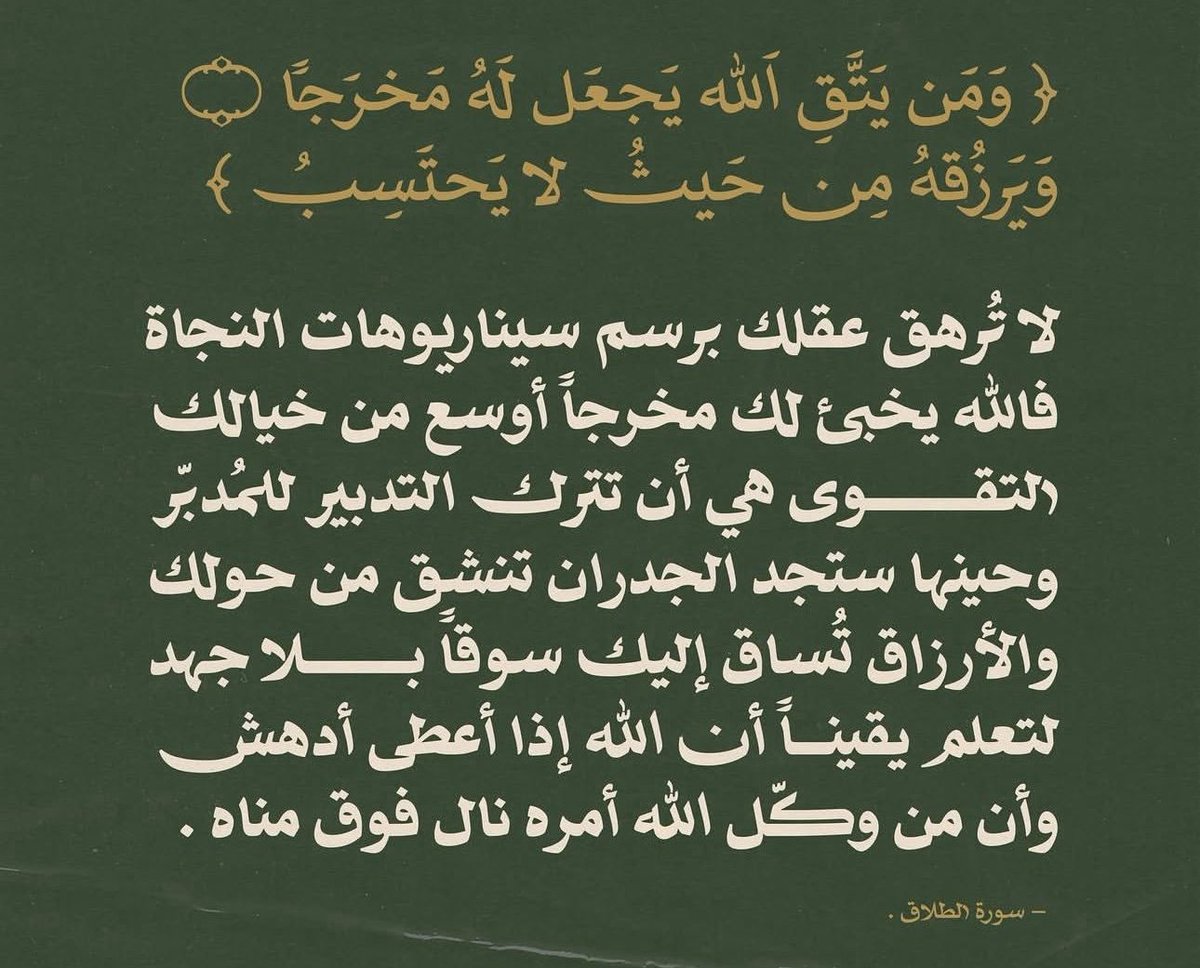 ﴿ وَمَن يَتَّقِ اَللّه يَجعَل لَهُ مَخرَجاً ۝
وَيَرزُقهُ مِن حَيثُ لا يَحتَسِبُ ﴾
لا تُرهق عقلك برسم سيناريوهات النجاة
فالله يخبئ لك مخرجاً أوسع من خيالك
التقـــــوى هي أن تترك التدبير للمُدبّر
وحينها ستجد الجدران تنشق من حولك
والأرزاق تُساق إليك سوقاً بـــــلا جهد
لتعلم يقينـاً أن الله إذا أعطى أدهش
وأن من وكّل الله أمره نال فوق مناه .
– سورة الطلاق .